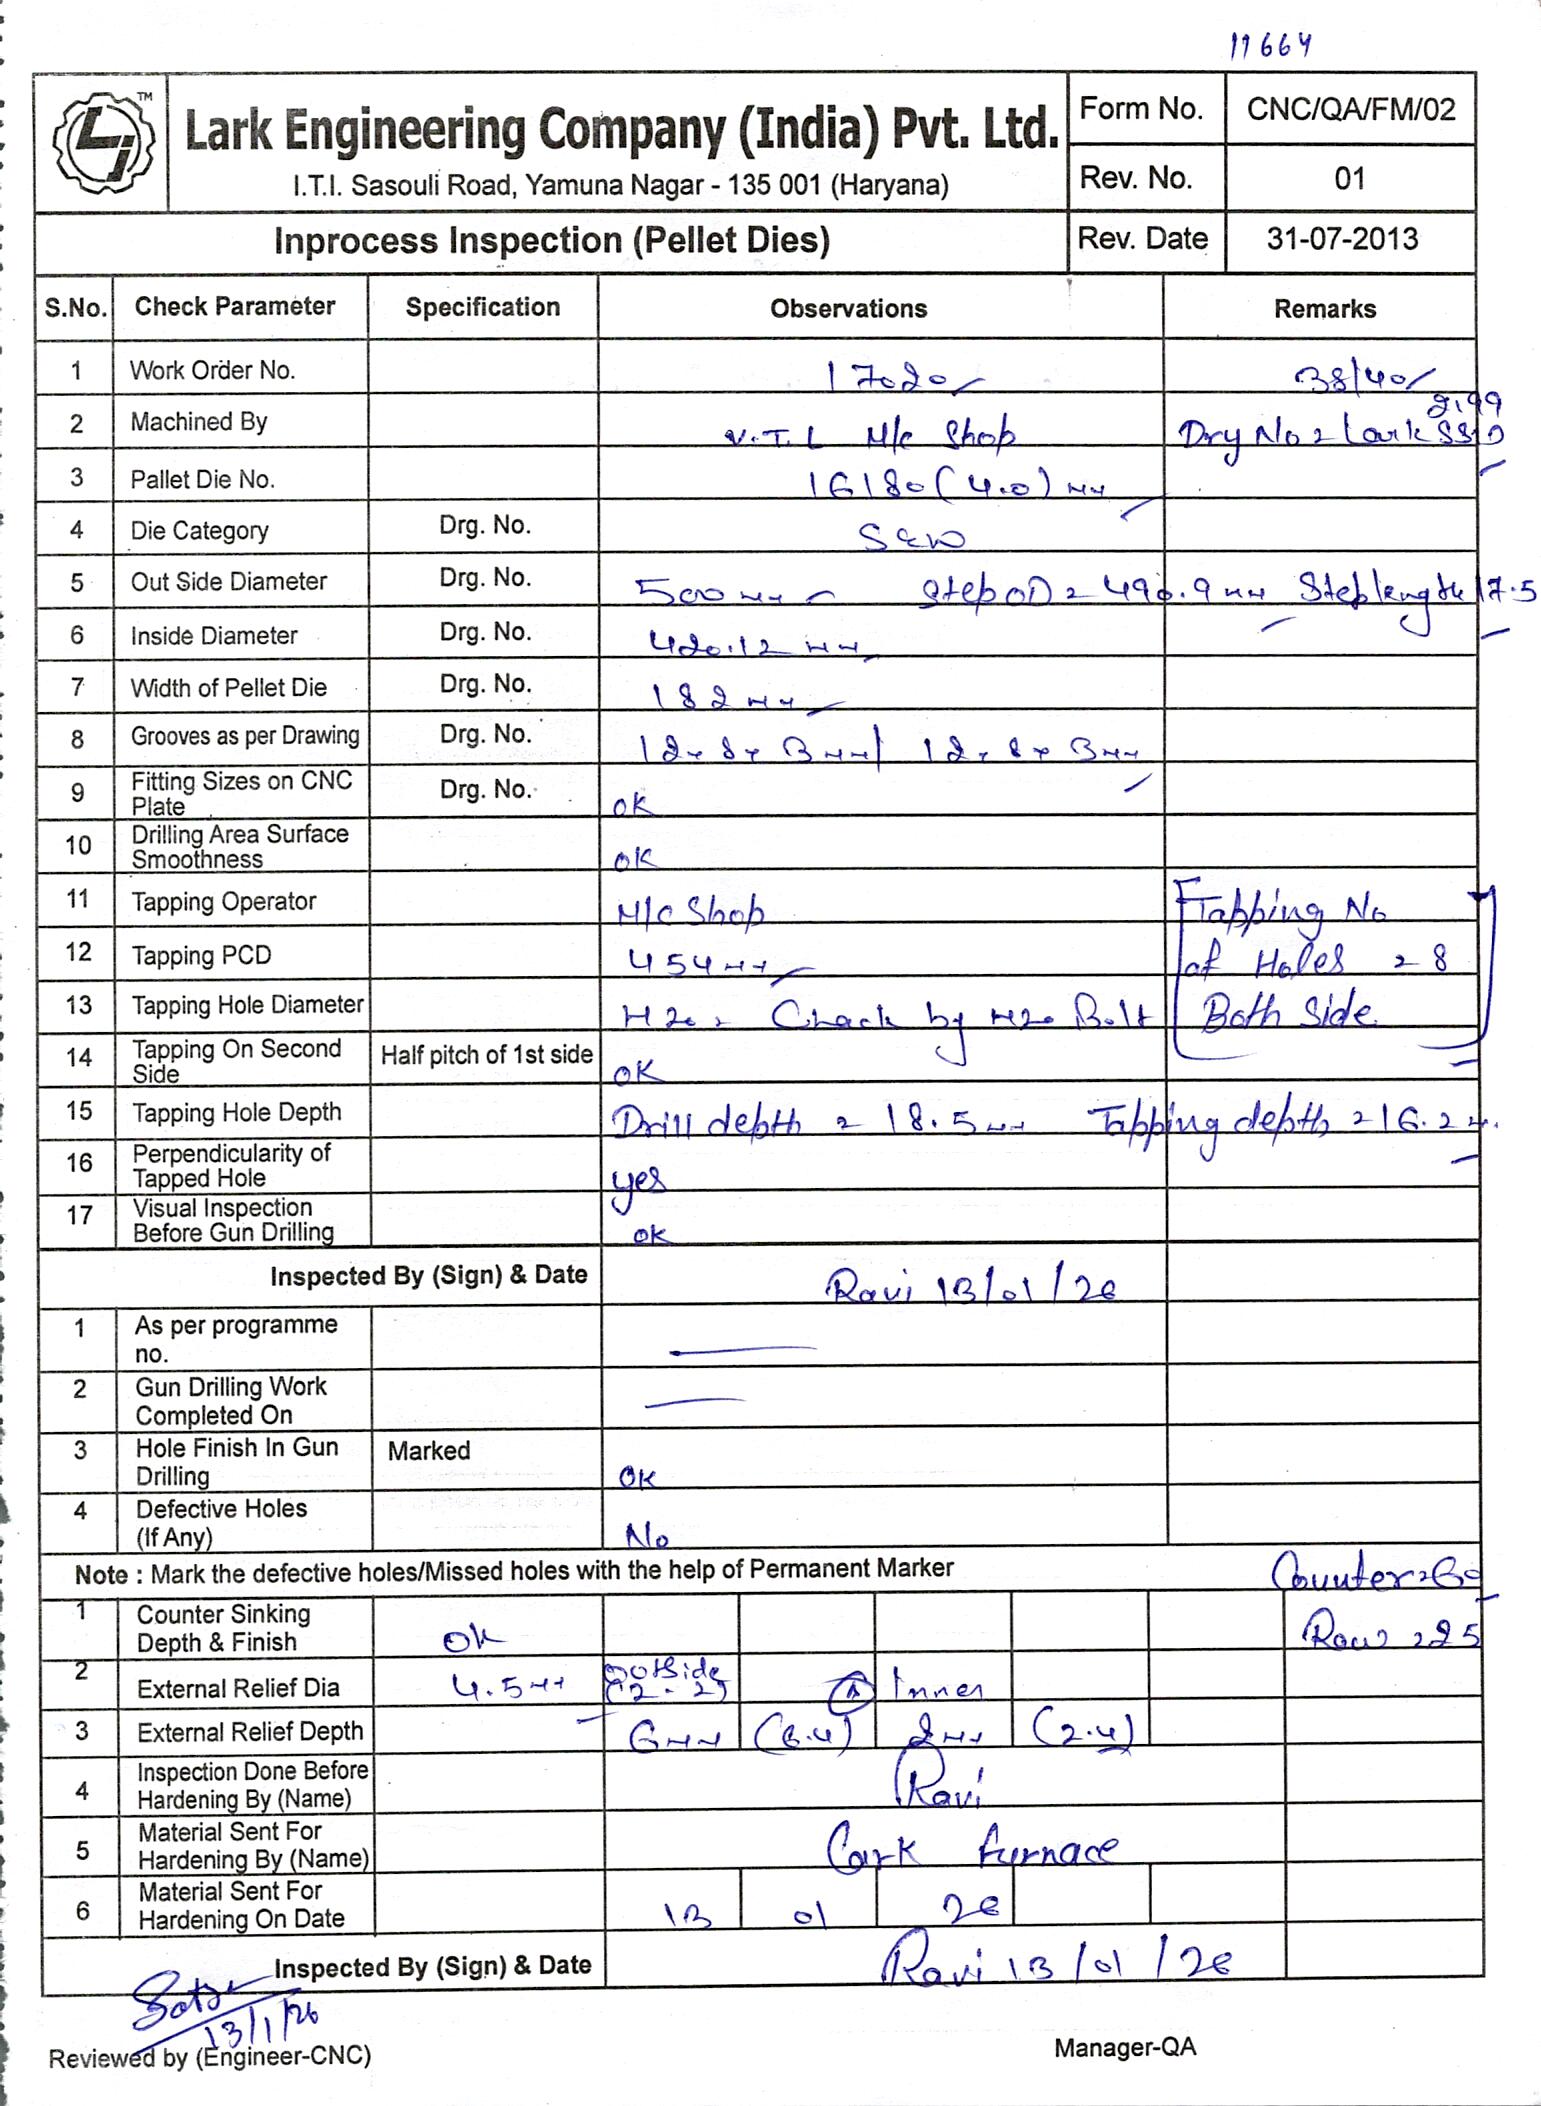 11664
LJ TM
Lark Engineering Company (India) Pvt. Ltd.
I.T.I. Sasouli Road, Yamuna Nagar - 135 001 (Haryana)
Form No. CNC/QA/FM/02
Rev. No. 01
Inprocess Inspection (Pellet Dies) Rev. Date 31-07-2013
S.No. Check Parameter Specification Observations Remarks
1 Work Order No. 17020 38/40
2 Machined By V.T.L M/c Shop Drg No = Lark
3 Pallet Die No. 16180 (4.0) mm
4 Die Category Drg. No.
5 Out Side Diameter Drg. No. 500 mm Step OD = 490.9 mm Step length 17.5
6 Inside Diameter Drg. No. 420.12 mm
7 Width of Pellet Die Drg. No. 182 mm
8 Grooves as per Drawing Drg. No. 12 x 8 x 3 mm / 12 x 8 x 3 mm
9 Fitting Sizes on CNC Plate Drg. No. OK
10 Drilling Area Surface Smoothness OK
11 Tapping Operator M/c Shop Tapping No
12 Tapping PCD 454 mm of Holes = 8
13 Tapping Hole Diameter M20 = Check by M20 Bolt Both Side
14 Tapping On Second Side Half pitch of 1st side OK
15 Tapping Hole Depth Drill depth = 18.5 mm Tapping depth = 16.2 m.
16 Perpendicularity of Tapped Hole yes
17 Visual Inspection Before Gun Drilling OK
Inspected By (Sign) & Date Ravi 13/01/26
1 As per programme no.
2 Gun Drilling Work Completed On
3 Hole Finish In Gun Drilling Marked OK
4 Defective Holes (If Any) No
Note : Mark the defective holes/Missed holes with the help of Permanent Marker Counter = 60
1 Counter Sinking Depth & Finish OK Row = 25
2 External Relief Dia 4.5 mm Outside (2-2) Inner
3 External Relief Depth 6 mm (6.4) 2 mm (2.4)
4 Inspection Done Before Hardening By (Name) Ravi
5 Material Sent For Hardening By (Name) Lark furnace
6 Material Sent For Hardening On Date 13 01 26
Inspected By (Sign) & Date Ravi 13/01/26
13/1/26
Reviewed by (Engineer-CNC) Manager-QA